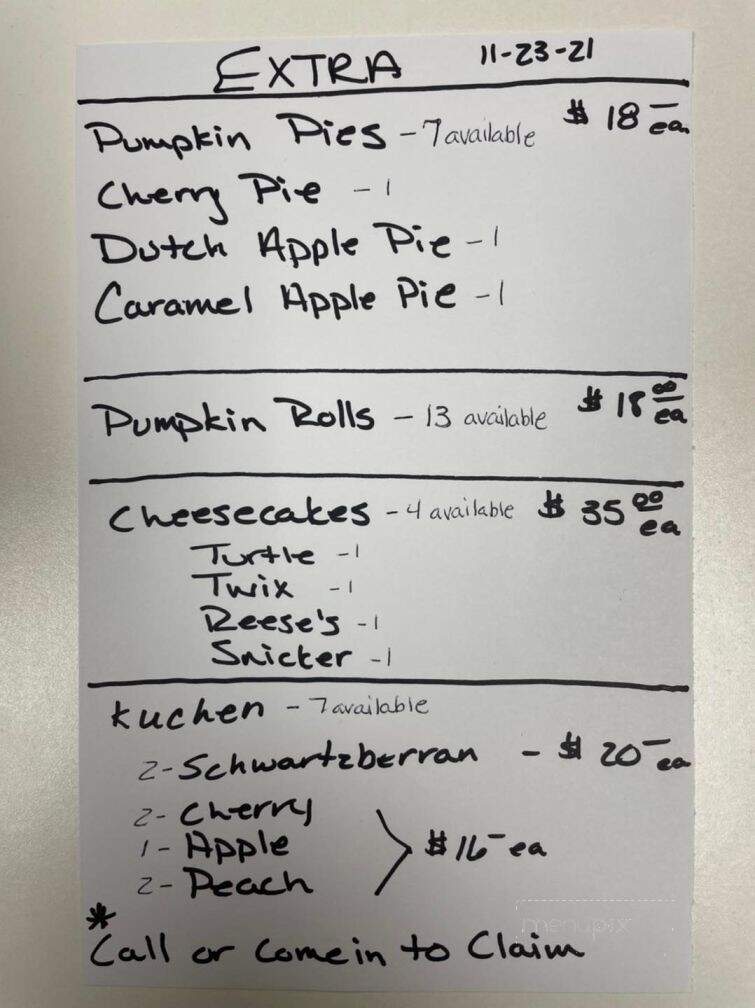 EXTRA 11-23-21
Pumpkin Pies - 7 available $18 – ea.
Cherry Pie - 1
Dutch Apple Pie - 1
Caramel Apple Pie - 1
Pumpkin Rolls - 13 available $18 00 ea
Cheesecakes - 4 available $35 00 ea
Turtle - 1
Twix - 1
Reese's - 1
Snicker - 1
Kuchen - 7 available
2 - Schwartzberran - $20 – ea
2 - Cherry
1 - Apple $16 – ea
2 - Peach
*
Call or come in to Claim
menupix